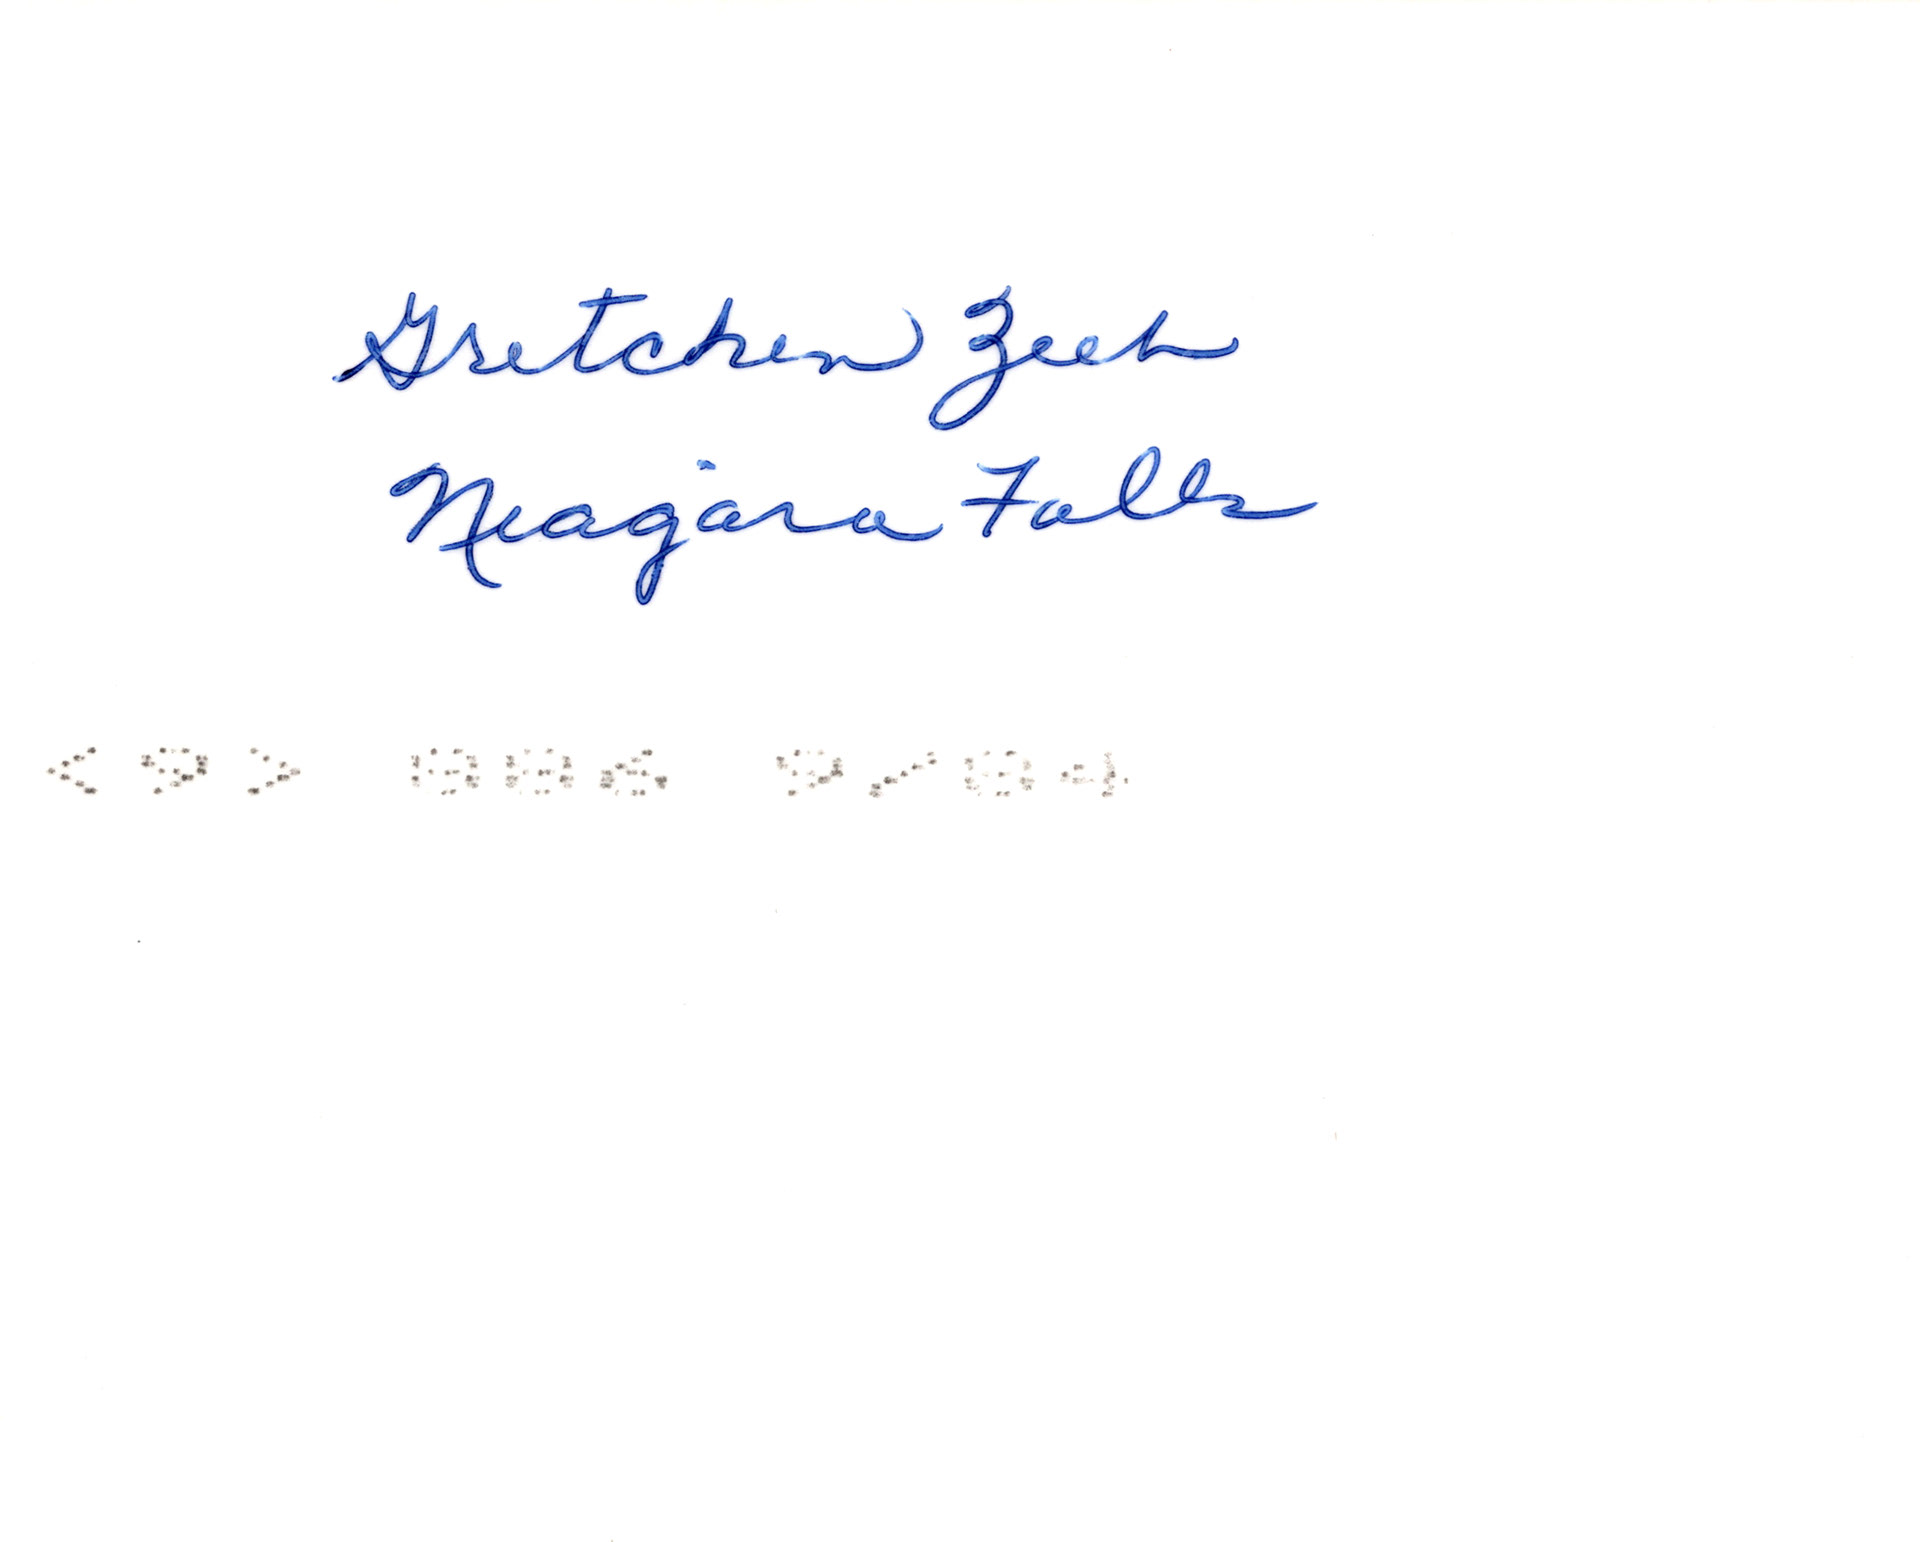 Gretchen Zeeh
Niagara Falls
<9> 006 9/04